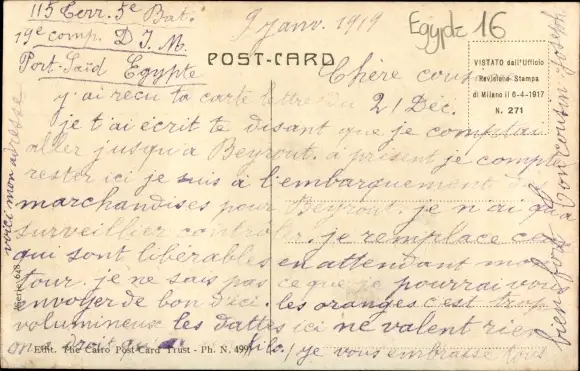 115 Terr. 5e Bat.
19e comp. D.I.M.
Port-Saïd Egypte
9 janv. 1919
Egypte 16
POST-CARD
VISTATO dall'Ufficio
Revisione Stampa
di Milano il 6-4-1917
N. 271
Chère cous
j'ai reçu ta carte lettre du 21 Déc.
je t'ai écrit te disant que je comptai
aller jusqu'à Beyrout. à présent je compte
rester ici je suis à l'embarquement de
marchandises pour Beyrout. je n'ai qu'a
surveiller controler. je remplace ceux
qui sont libérables en attendant mon
tour. je ne sais pas ce que je pourrai vous
envoyer de bon d'ici. les oranges c'est trop
volumineux les dattes ici ne valent rien
on droit qu
kilo. je vous embrasse tous
bien fort
ton cousin Joseph
voici mon adresse
Edit. The Cairo Post-Card Trust - Ph. N. 499